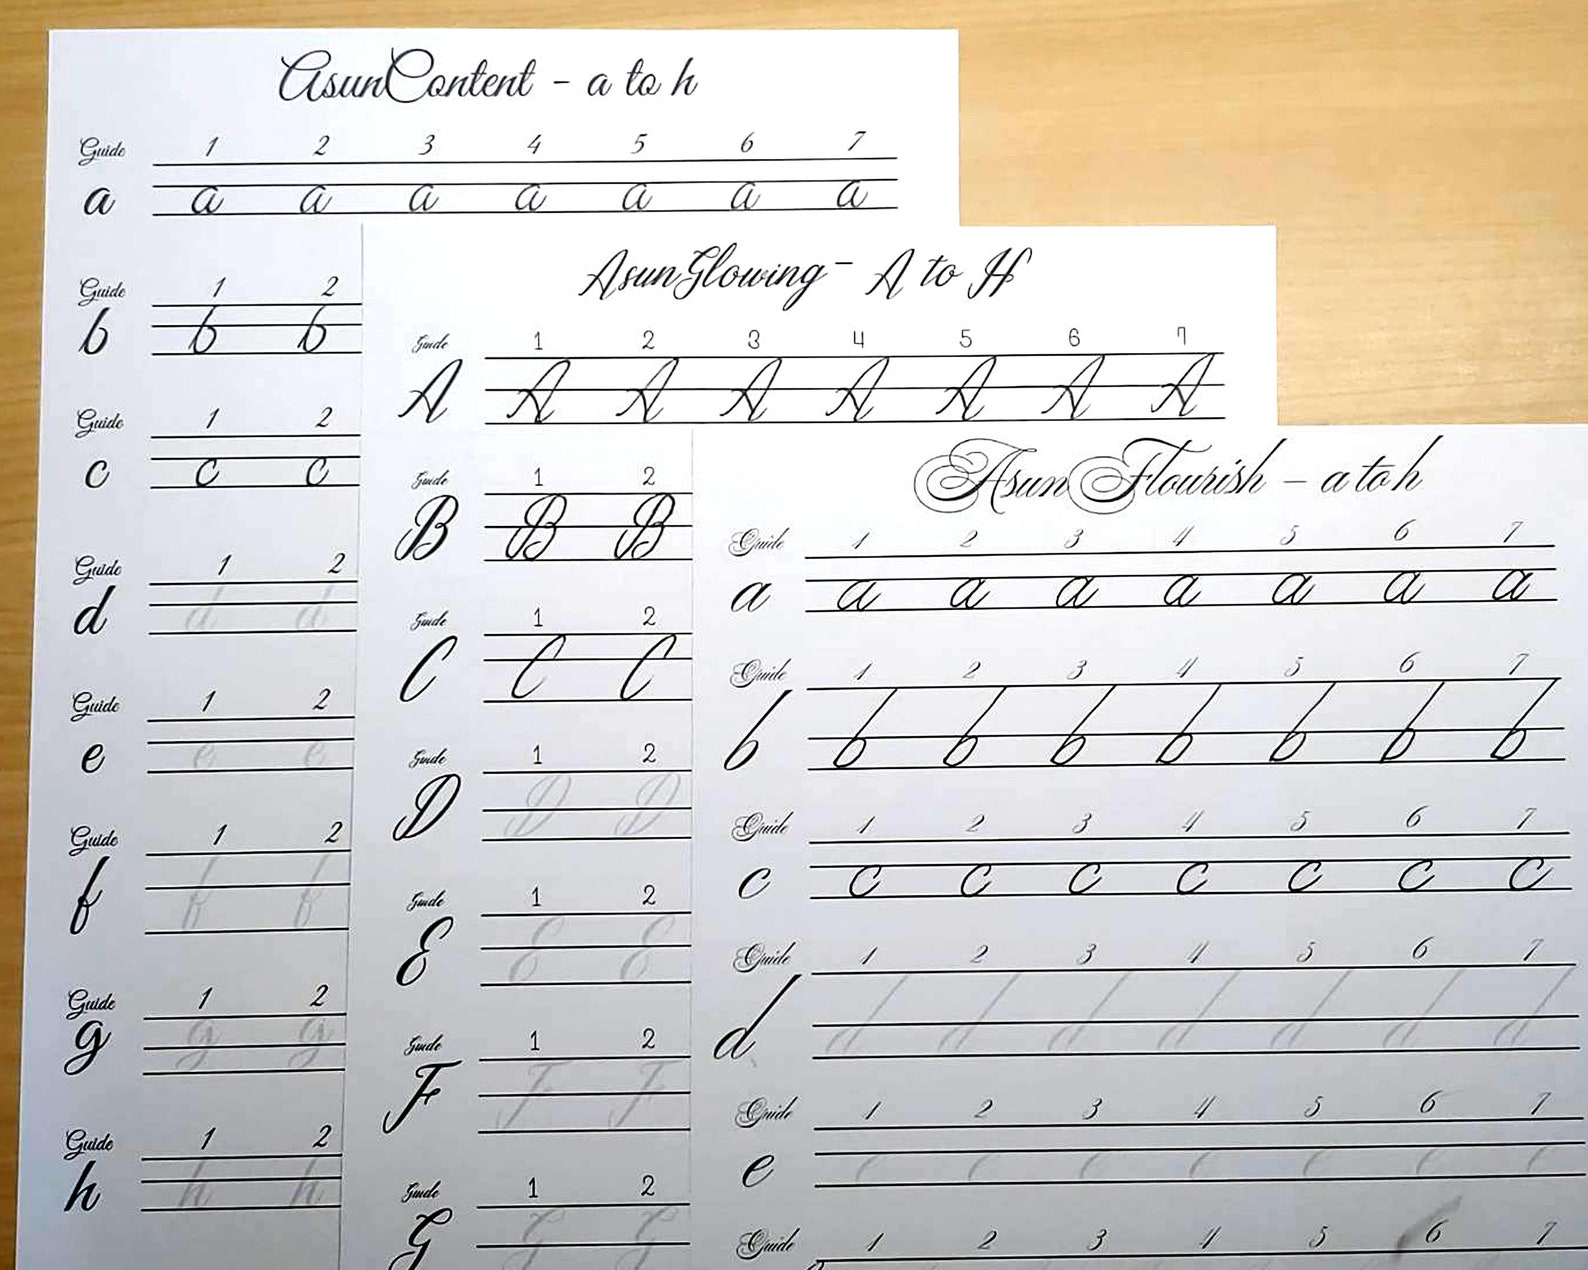 AsunContent - a to h
Guide 1 2 3 4 5 6 7
a a a a a a a a
Guide 1 2
b b b
Guide 1 2
c c c
Guide 1 2
d d d
Guide 1 2
e e e
Guide 1 2
f f f
Guide 1 2
g g g
Guide 1 2
h h h
AsunGlowing - A to H
Guide 1 2 3 4 5 6 7
A A A A A A A A
Guide 1 2
B B B
Guide 1 2
C C C
Guide 1 2
D D D
Guide 1 2
E E E
Guide 1 2
F F F
Guide 1 2
G G G
AsunFlourish - a to h
Guide 1 2 3 4 5 6 7
a a a a a a a a
Guide 1 2 3 4 5 6 7
b b b b b b b b
Guide 1 2 3 4 5 6 7
c c c c c c c c
Guide 1 2 3 4 5 6 7
d d d d d d d d
Guide 1 2 3 4 5 6 7
e e e e e e e e
Guide 1 2 3 4 5 6 7